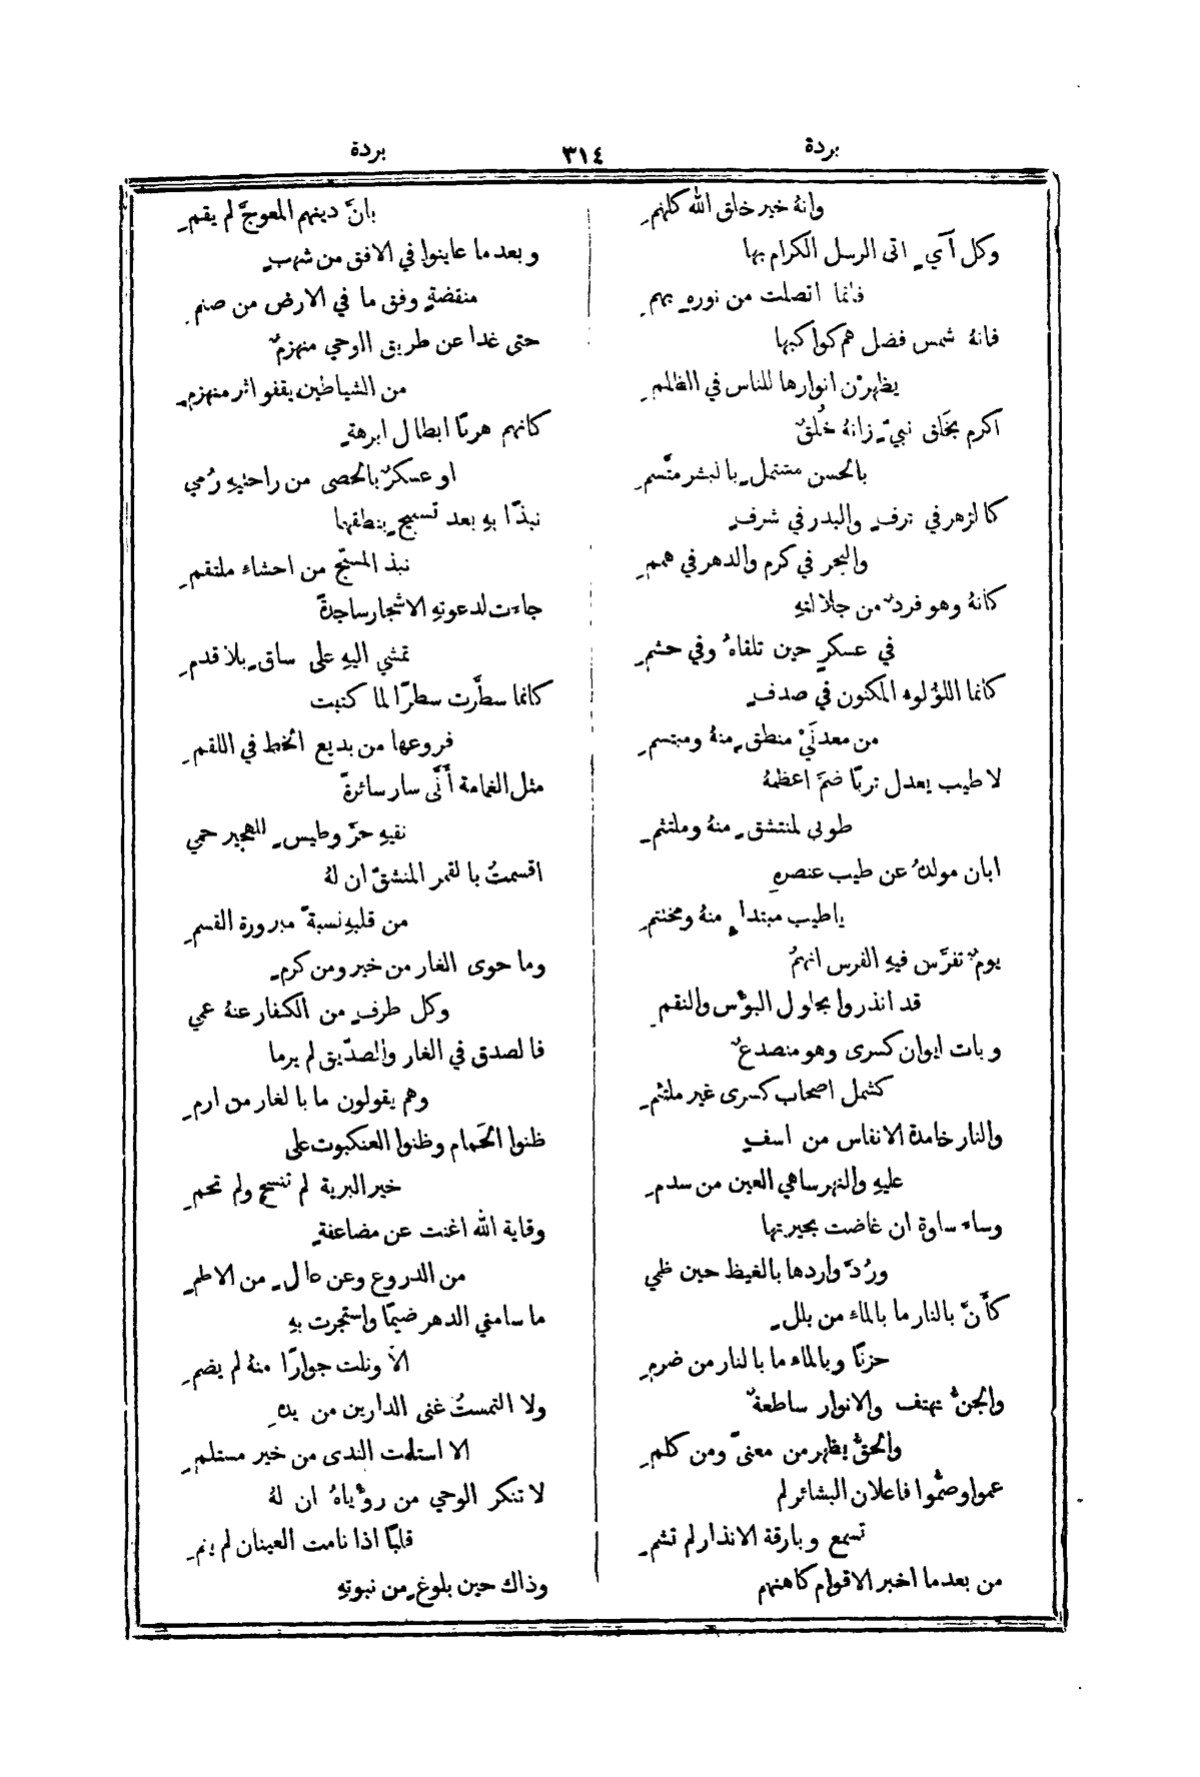 بردة
٣١٤
بردة
وانهُ خير خلق الله كلهمِ
وكل آيٍ اتى الرسل الكرام بها
فانما اتصلت من نورهِ بهمِ
فانهُ شمس فضل هم كواكبها
يظهرْن انوارها للناس في الظلمِ
اكرم بخَلق نبيّ زانهُ خُلقٌ
بالحسن مشتملٍ بالبشر متَّسمِ
كالزهر في ترفٍ والبدر في شرفٍ
والبحر في كرم والدهر في هممِ
كانهُ وهو فردٌ من جلالتهِ
في عسكرٍ حين تلقاهُ وفي حشمِ
كانما اللؤلوه المكنون في صدفٍ
من معدنَيْ منطقٍ منهُ ومبتسمِ
لا طيب يعدل تربًا ضمَّ اعظمهُ
طوبى لمنتشقٍ منهُ وملتثمِ
ابان مولدهُ عن طيب عنصرهِ
ياطيب مبتدإٍ منهُ ومختتمِ
يومٌ تفرَّس فيهِ الفرس انهمُ
قد انذروا بحلول البؤس والنقمِ
وبات ايوان كسرى وهو منصدعٌ
كشمل اصحاب كسرى غير ملتئمِ
والنار خامدة الانفاس من اسفٍ
عليهِ والنهر ساهي العين من سدمِ
وساء ساوة ان غاضت بحيرتها
ورُدَّ واردها بالغيظ حين ظمي
كأَنَّ بالنار ما بالماء من بللٍ
حزنًا وبالماء ما بالنار من ضرمِ
والجنُّ تهتف والانوار ساطعةٌ
والحقُّ يظهر من معنىً ومن كلمِ
عموا وصمُّوا فاعلان البشائر لم
تسمع وبارقة الانذار لم تشمِ
من بعدما اخبر الاقوام كاهنهم
بانَّ دينهم المعوجَّ لم يقمِ
وبعد ما عاينوا في الافق من شهبٍ
منقضةٍ وفق ما في الارض من صنمِ
حتى غدا عن طريق الوحي منهزمٌ
من الشياطين يقفو اثر منهزمِ
كانهم هربًا ابطال ابرهةٍ
او عسكرٌ بالحصى من راحتيهِ رُمي
نبذًا بهِ بعد تسبيحٍ ببطنهما
نبذ المسبّح من احشاء ملتقمِ
جاءت لدعوتهِ الاشجار ساجدةً
تمشي اليهِ على ساقٍ بلا قدمِ
كانما سطَّرت سطرًا لما كتبت
فروعها من بديع الخط في اللقمِ
مثل الغمامة أَنَّى سار سائرةً
تقيهِ حرَّ وطيسٍ للهجير حمي
اقسمتُ بالقمر المنشقّ ان لهُ
من قلبهِ نسبةً مبرورة القسمِ
وما حوى الغار من خير ومن كرمٍ
وكل طرفٍ من الكفار عنهُ عمي
فالصدق في الغار والصدّيق لم يرما
وهم يقولون ما بالغار من ارمِ
ظنوا الحَمام وظنوا العنكبوت على
خير البرية لم تنسج ولم تحمِ
وقاية الله اغنت عن مضاعفةٍ
من الدروع وعن عالٍ من الاطمِ
ما سامني الدهر ضيمًا واستجرت بهِ
الاَّ ونلت جوارًا منهُ لم يضمِ
ولا التمستُ غنى الدارين من يدهِ
الا استلمت الندى من خير مستلمِ
لا تنكر الوحي من رؤْياهُ ان لهُ
قلبًا اذا نامت العينان لم ينمِ
وذاك حين بلوغٍ من نبوتهِ